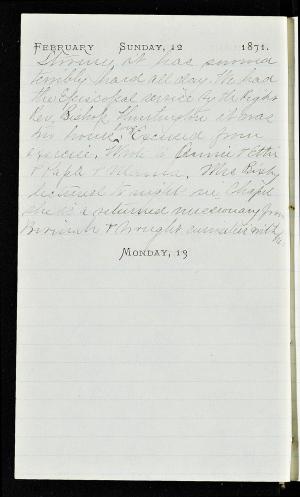 FEBRUARY SUNDAY, 12 1871.
Stormy, it has snowed
terribly hard all day. We had
the Episcopal service by the Right
Rev. Bishop Huntington it was
two hours long. Excused from
exercise. Wrote to Annie & Etta
& Papa & Mamma. Mrs Bixby
lectured to night in Chapel
she is a returned missionary from
Birmah & brought curiosities with
her.
MONDAY, 13